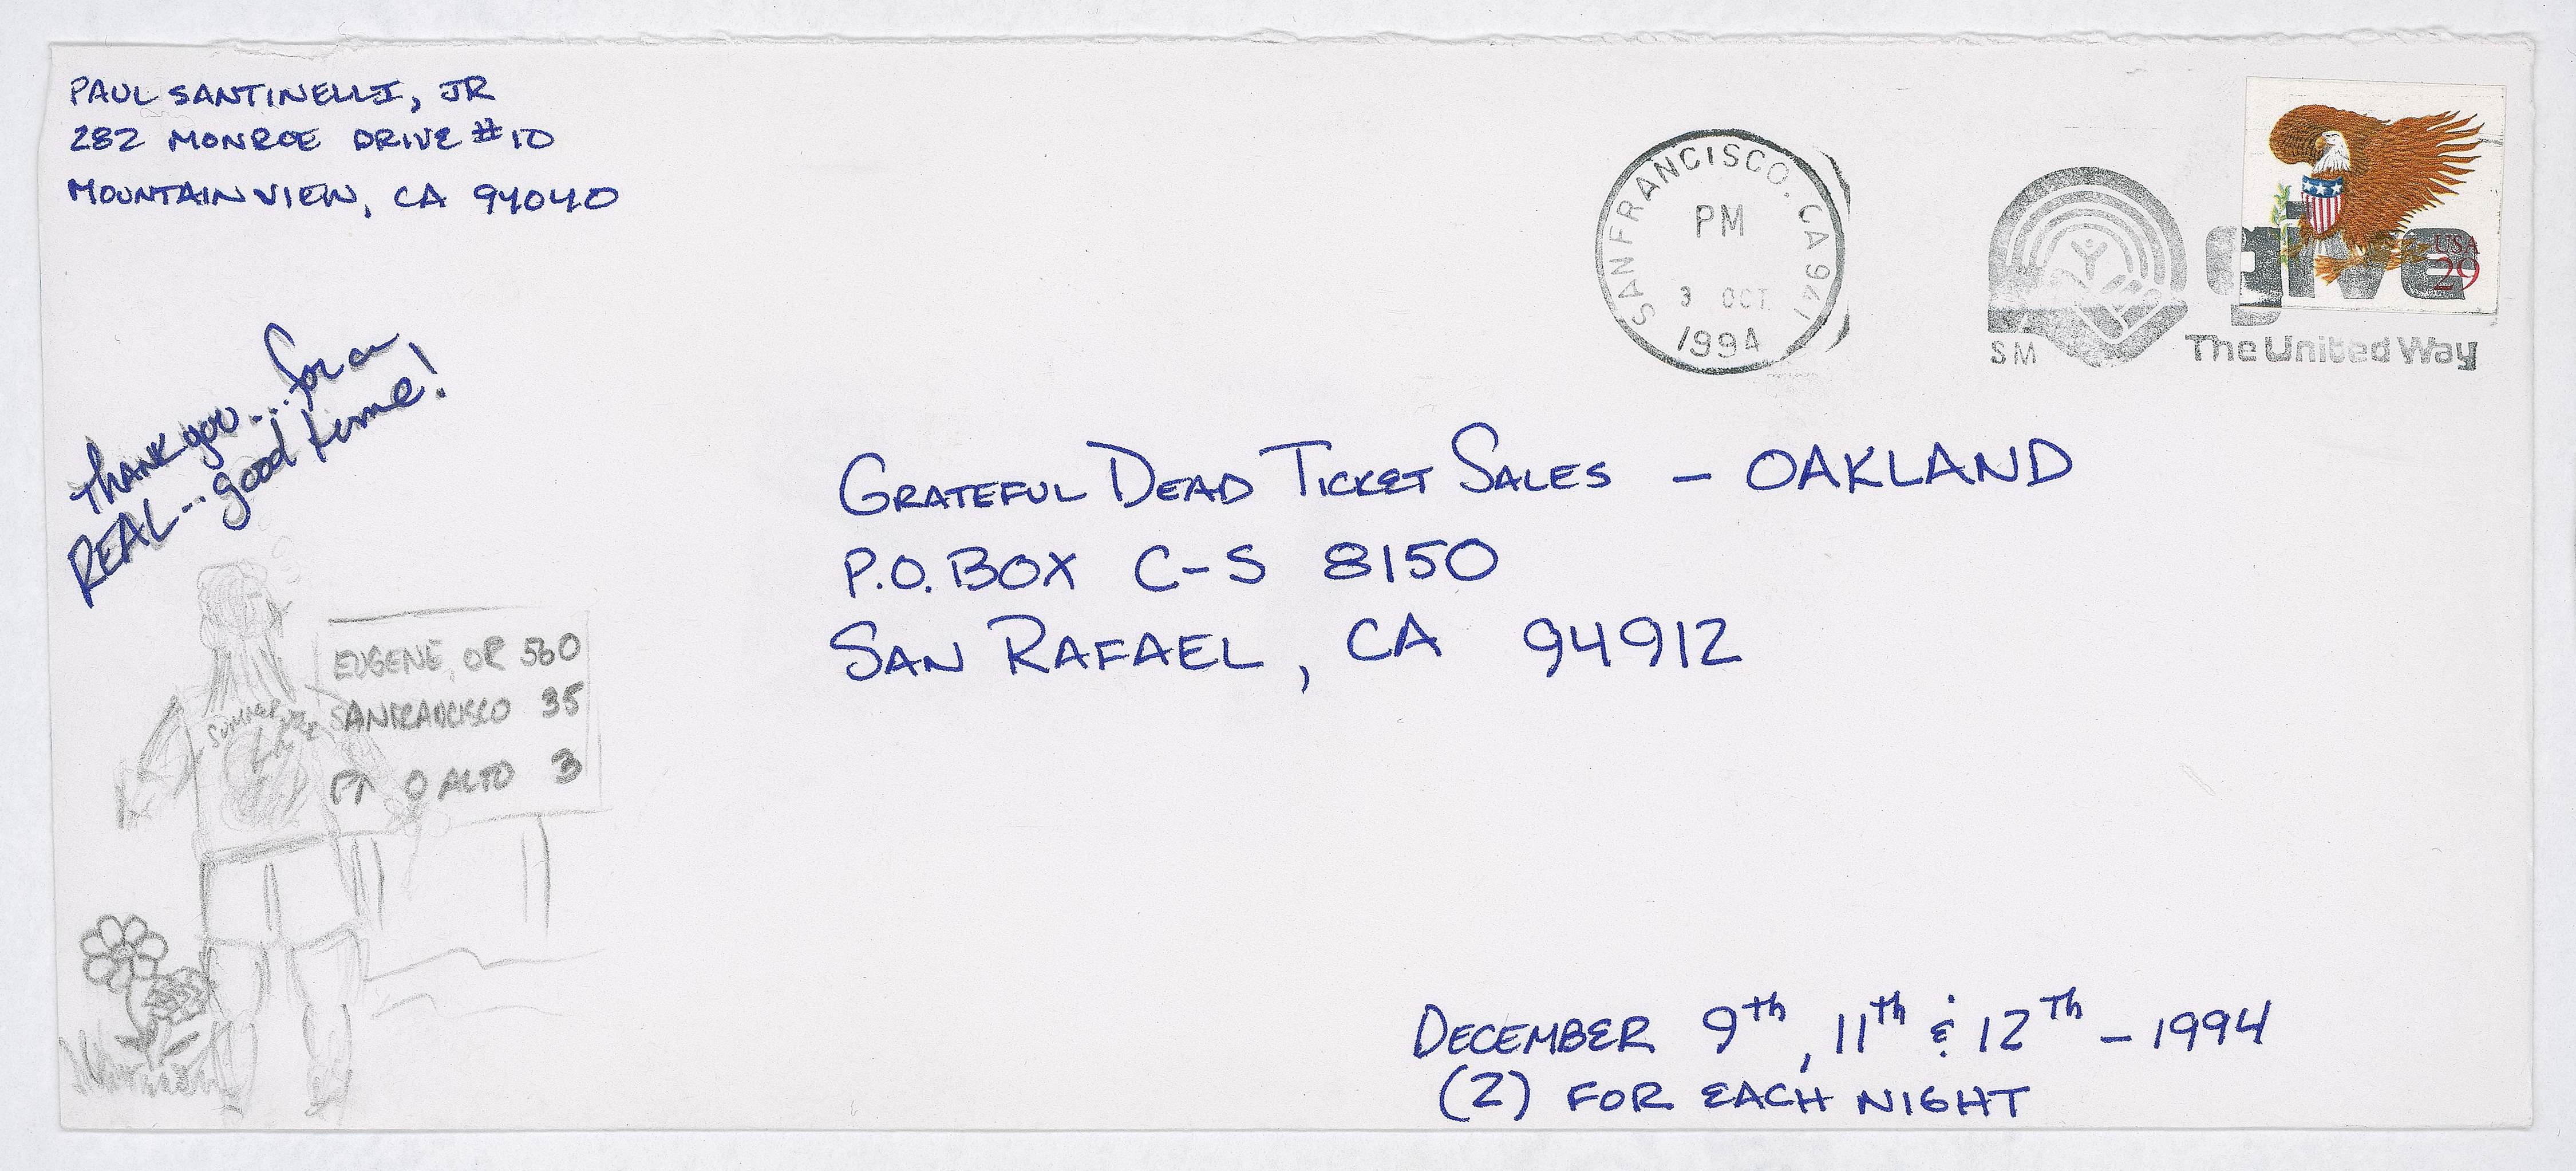 PAUL SANTINELLI, JR
282 MONROE DRIVE #10
MOUNTAIN VIEW, CA 94040
SAN FRANCISCO, CA 941
PM
3 OCT
1994
SM
give
The United Way
USA
29
thank you...for a
REAL...good time!
GRATEFUL DEAD TICKET SALES - OAKLAND
P.O. BOX C-S 8150
SAN RAFAEL, CA 94912
EUGENE, OR 560
SANFRANCISCO 35
O ALTO 3
SUMMER
DECEMBER 9th, 11th & 12th - 1994
(2) FOR EACH NIGHT